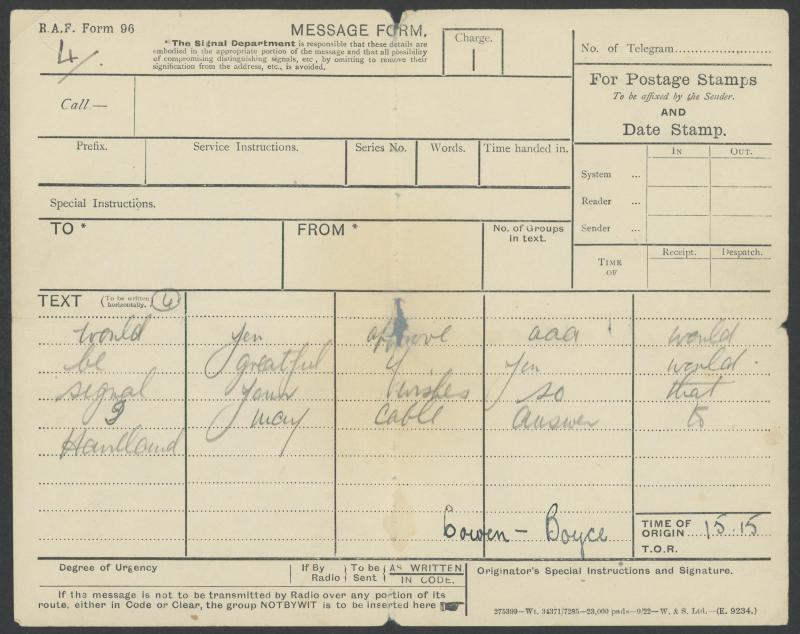 R.A.F. Form 96
MESSAGE FORM.
4/.
"The Signal Department is responsible that these details are
embodied in the appropriate portion of the message and that all possibility
of compromising distinguishing signals, etc, by omitting to remove their
signification from the address, etc., is avoided.
Charge.
No. of Telegram
Call—
For Postage Stamps
To be affixed by the Sender.
AND
Date Stamp.
Prefix. Service Instructions. Series No. Words. Time handed in.
IN OUT.
System ...
Reader ...
Sender ...
Special Instructions.
TO * FROM * No. of Groups
in text.
TIME
OF
Receipt. Despatch.
TEXT (To be written horizontally.) 4
would you approve aaa would
be greatful if you would.
signal your wishes so that
I may cable answer to
Cowen - Boyce
TIME OF
ORIGIN 15.15
T.O.R.
Degree of Urgency
If By
Radio
To be
Sent
AS WRITTEN
IN CODE.
Originator's Special Instructions and Signature.
If the message is not to be transmitted by Radio over any portion of its
route, either in Code or Clear, the group NOTBYWIT is to be inserted here
275399—Wt. 34371/7285—23,000 pads—9/22—W. & S. Ltd.—(E. 9234.)